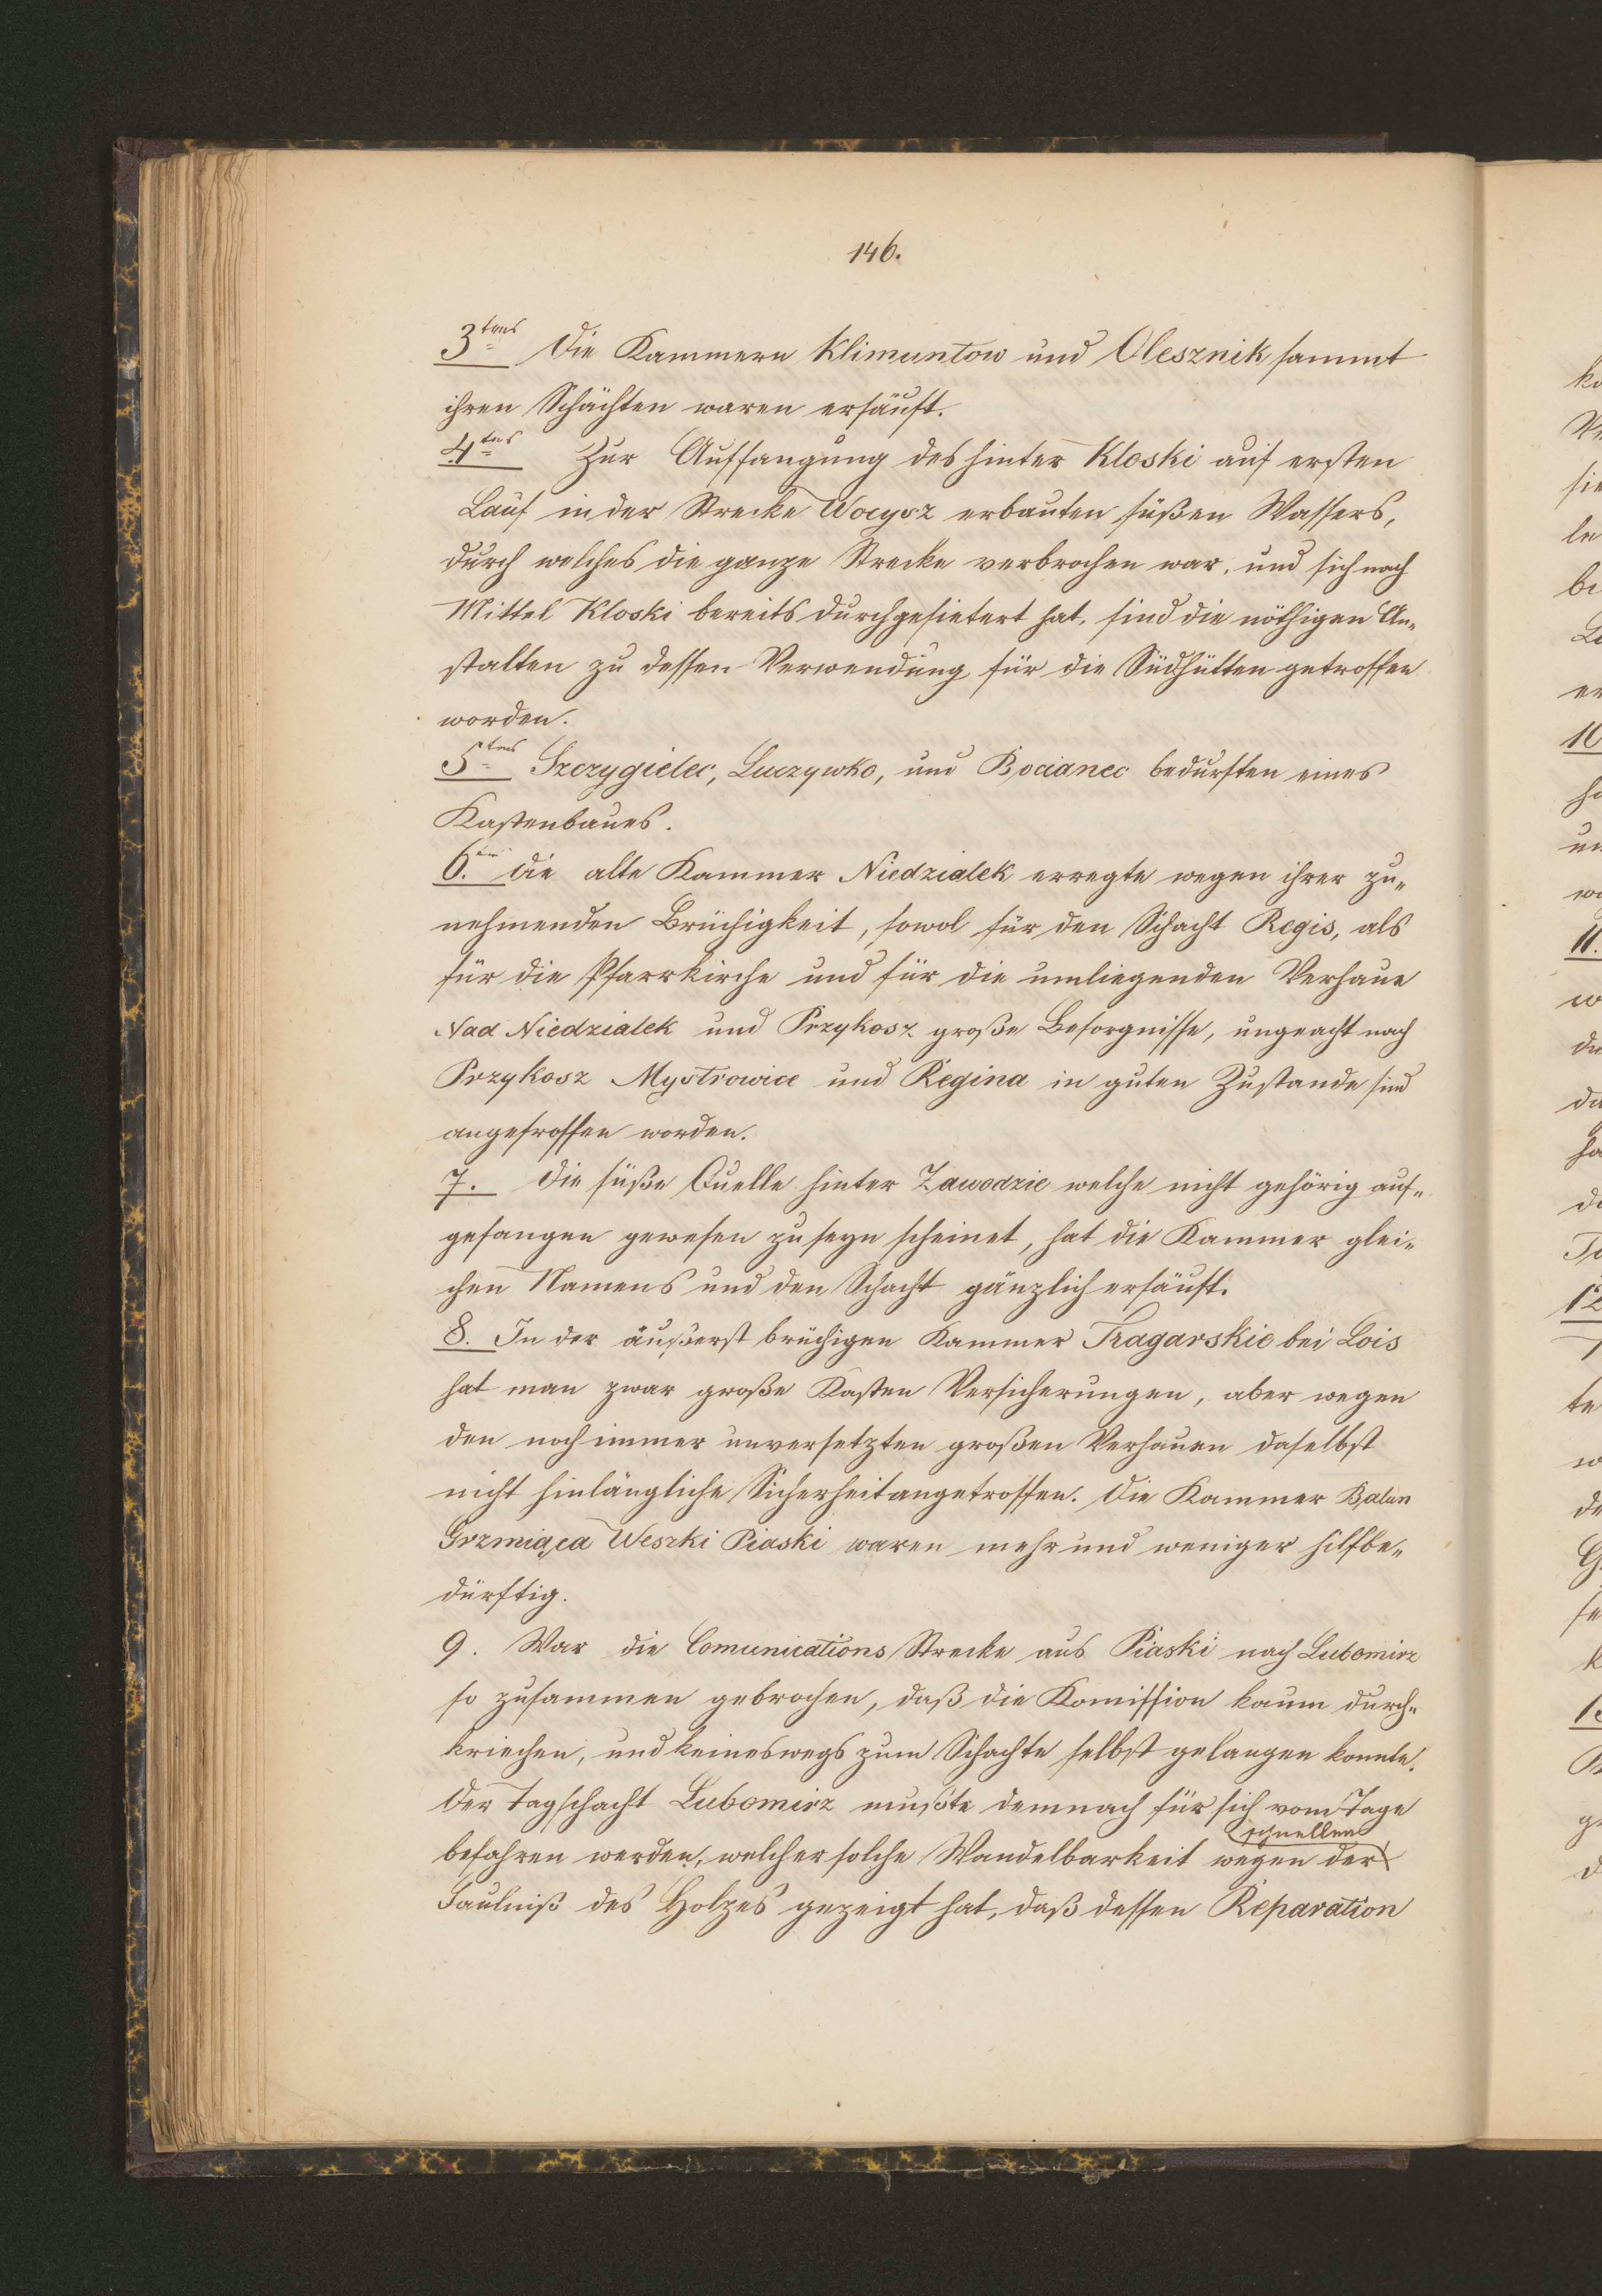 146.
3tens Die Kammern Klimuntow und Olesznik sammt
ihren Schächten waren ersäuft.
4tens Zur Auffangung des hinter Kloski auf ersten
Lauf in der Strecke Wocysz erbauten süßen Wassers,
durch welches die ganze Strecke verbrochen war, und sich nach
Mittel Kloski bereits durchgesietert hat, sind die nöthigen An-
stalten zu dessen Verwendung für die Südhütten getroffen
worden.
5tens Szczygielec, Luczywko, und Bocianec bedurften eines
Kastenbaues.
6. Die alte Kammer Niedzialek erregte wegen ihrer zu-
nehmenden Brüchigkeit, sowol für den Schacht Regis, als
für die Pfarrkirche und für die umliegenden Verhaue
Nad Niedzialek und Przykosz große Besorgnisse, ungeacht nach
Przykosz Mystrowice und Regina in guten Zustande sind
angetroffen worden.
7. Die süße Quelle hinter Zawodzie welche nicht gehörig auf-
gefangen gewesen zu seyn scheinet, hat die Kammer glei-
chen Namens und den Schacht gänzlich ersäuft.
8. In der äußerst brüchigen Kammer Tragarskie bei Lois
hat man zwar große Kasten Versicherungen, aber wegen
den noch immer unversetzten großen Verhauen daselbst
nicht hinlängliche Sicherheit angetroffen. Die Kammer Balun
Grzmiąca Weszki Piaski waren mehr und weniger hilfbe-
dürftig.
9. War die Comunications Strecke aus Piaski nach Lubomirz
so zusammen gebrochen, daß die Komission kaum durch-
kriechen, und keineswegs zum Schachte selbst gelangen konnte.
Der Tagschacht Lubomirz mußte demnach für sich vom Tage
befahren werden, welcher solche Wandelbarkeit wegen der schnellen
Faulniß des Holzes gezeigt hat, daß dessen Reparation